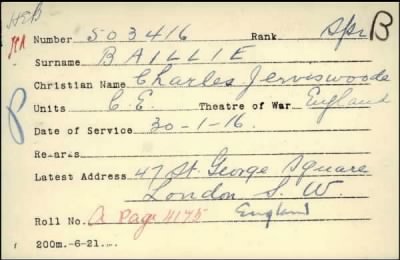 HEB
Number 503416 Rank Spr B
Surname BAILLIE
Christian Name Charles Jerviswoode
Units C.E. Theatre of War England
Date of Service 30-1-16.
Remarks
Latest Address 47 St. George Square
London S.W.
England
Roll No. A Page 4175
200m.-6-21.